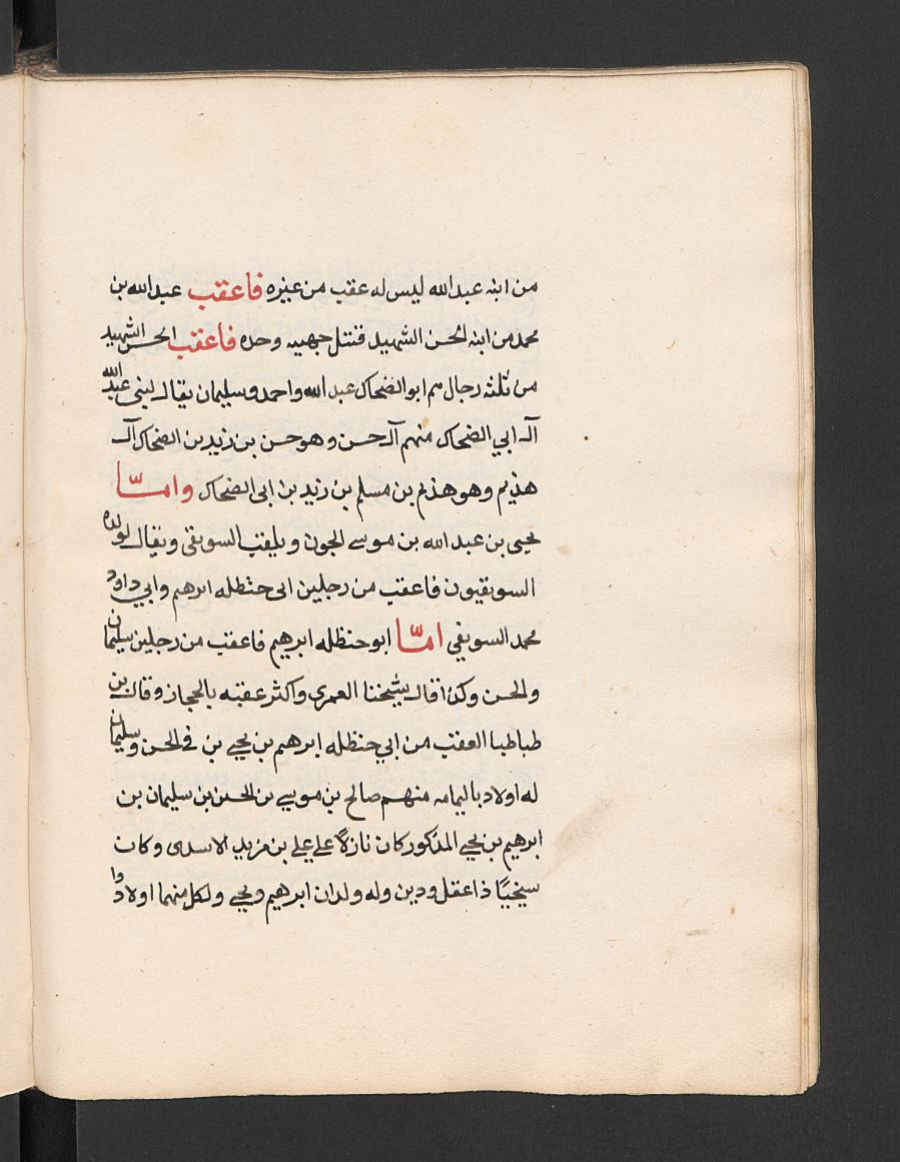 من ابنه عبدالله ليس له عقب من غيره فاعقب عبدالله بن
محمد من ابنه الحسن الشهيد قتيل جهينه وحده فاعقب الحسن الشهيد
من ثلثه رجال هم ابو الضحاك عبد الله واحمد وسليمان يقال لبنى عبد الله
آل ابي الضحاك منهم آل حسن وهو حسن بن زيد بن الضحاك آل
هذيم وهو هذيم بن مسلم بن زيد بن ابى الضحاك وامّا
يحيى بن عبد الله بن موسى الجون ويلقب السويقى ويقال لولده
السويقيون فاعقب من رجلين ابى حنظله ابرهيم وابي داود
محمد السويقي امّا ابو حنظله ابرهيم فاعقب من رجلين سليمان
والحسن وكذا قال شيخنا العمرى واكثر عقبه بالحجاز وقال بن
طباطبا العقب من ابي حنظله ابرهيم بن يحيى بن فى الحسن وسليمان
له اولاد باليمامه منهم صالح بن موسى بن الحسن بن سليمان بن
ابرهيم بن يحيى المذكور كان نازلاً على على بن مزيد الاسدى وكان
سيخيّا ذا عقل ودين وله ولدان ابرهيم ويحيى ولكل منهما اولاد وا